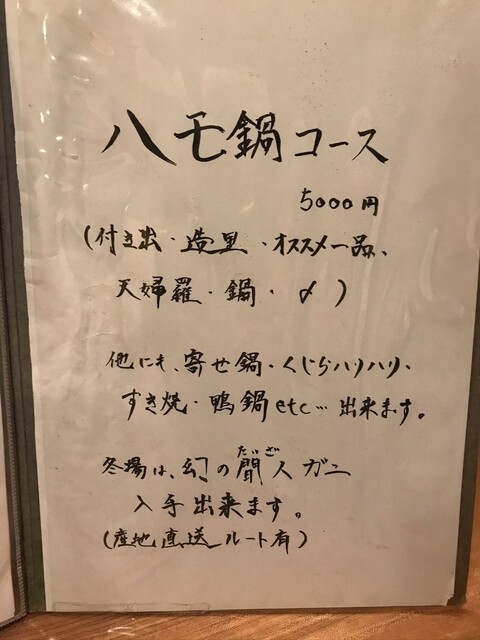 八モ鍋コース
5000円
(付き出・造里・オススメ一品、
天婦羅・鍋・〆)
他にも、寄せ鍋・くじらハリハリ・
すき焼・鴨鍋etc…出来ます。
たいざ
冬場は、幻の間人ガニ
入手出来ます。
(産地直送ルート有)